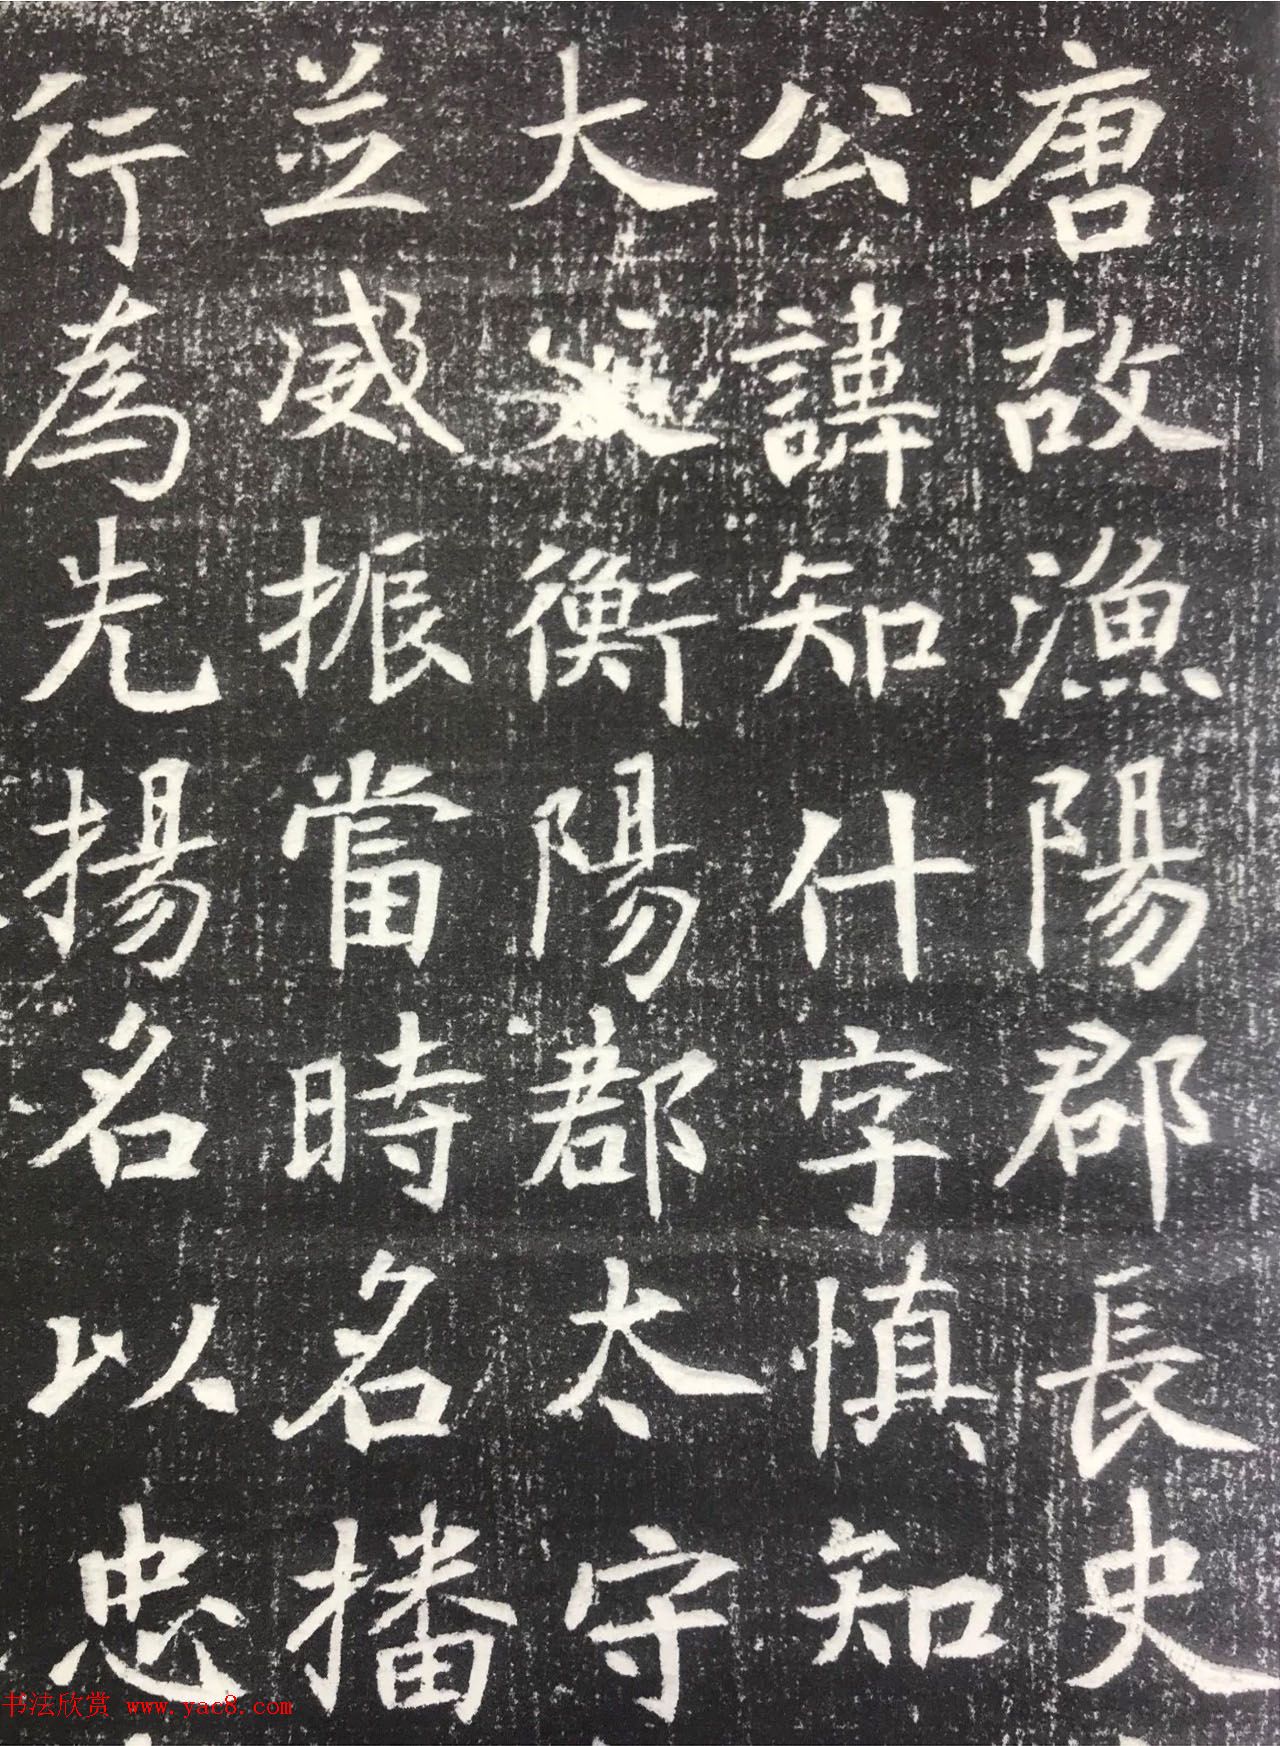 唐故漁陽郡長史
公諱知什字慎知
大 衡陽郡太守
並威振當時名播
行為先揚名以忠
书法欣赏 www.yac8.com